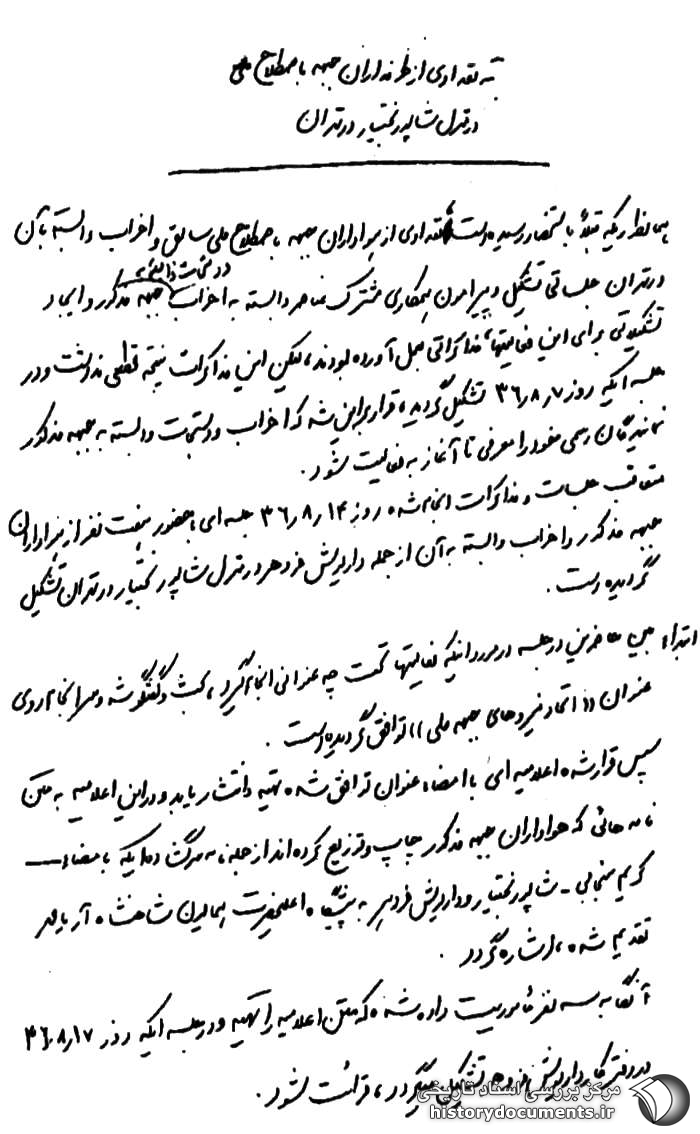 جلسه تعدادی از طرفداران جبهه باصطلاح ملی
در منزل شاپور بختیار در تهران
همانطوریکه قبلاً باستحضار رسیده است، تعدادی از هواداران جبهه باصطلاح ملی سابق و احزاب وابسته بآن
در تهران جلساتی تشکیل و پیرامون همکاری مشترک عناصر وابسته به احزاب و دستجات وابسته به جبهه مذکور و ایجاد
تشکیلاتی برای این فعالیتها، مذاکراتی بعمل آورده بودند، لکن این مذاکرات نتیجه قطعی نداشت و در
جلسه ایکه روز ۳۶،۸،۷ تشکیل گردید، قرار بر این شد که احزاب و دستجات وابسته به جبهه مذکور
نمایندگان رسمی خود را معرفی تا آغاز به فعالیت شود.
متعاقب جلسات و مذاکرات انجام شده روز ۳۶،۸،۱۴ جلسه ای با حضور هفت نفر از هواداران
جبهه مذکور و احزاب وابسته به آن از جمله داریوش فروهر در منزل شاپور بختیار در تهران تشکیل
گردیده است.
ابتدا، بین حاضرین در جلسه در مورد اینکه فعالیتها تحت چه عنوانی انجام گیرد، بحث و گفتگو شد و سرانجام روی
عنوان ((اتحاد نیروهای جبهه ملی)) توافق گردیده است.
سپس قرار شد اعلامیه ای با امضاء عنوان توافق شده تهیه و انتشار یابد و در این اعلامیه به متن
نامه هائی که هواداران جبهه مذکور چاپ و توزیع کرده اند از جمله نامه سرگشاده ایکه با امضاء
کریم سنجابی - شاپور بختیار و داریوش فروهر به پیشگاه اعلیحضرت همایون شاهنشاه آریامهر
تقدیم شده، اشاره گردد.
آنگاه به سه نفر مأموریت داده شد که متن اعلامیه را تهیه و در جلسه ایکه روز ۳۶،۸،۱۷
در دفتر کار داریوش فروهر تشکیل میگردد، قرائت شود.
مرکز بررسی اسناد تاریخی
historydocuments.ir